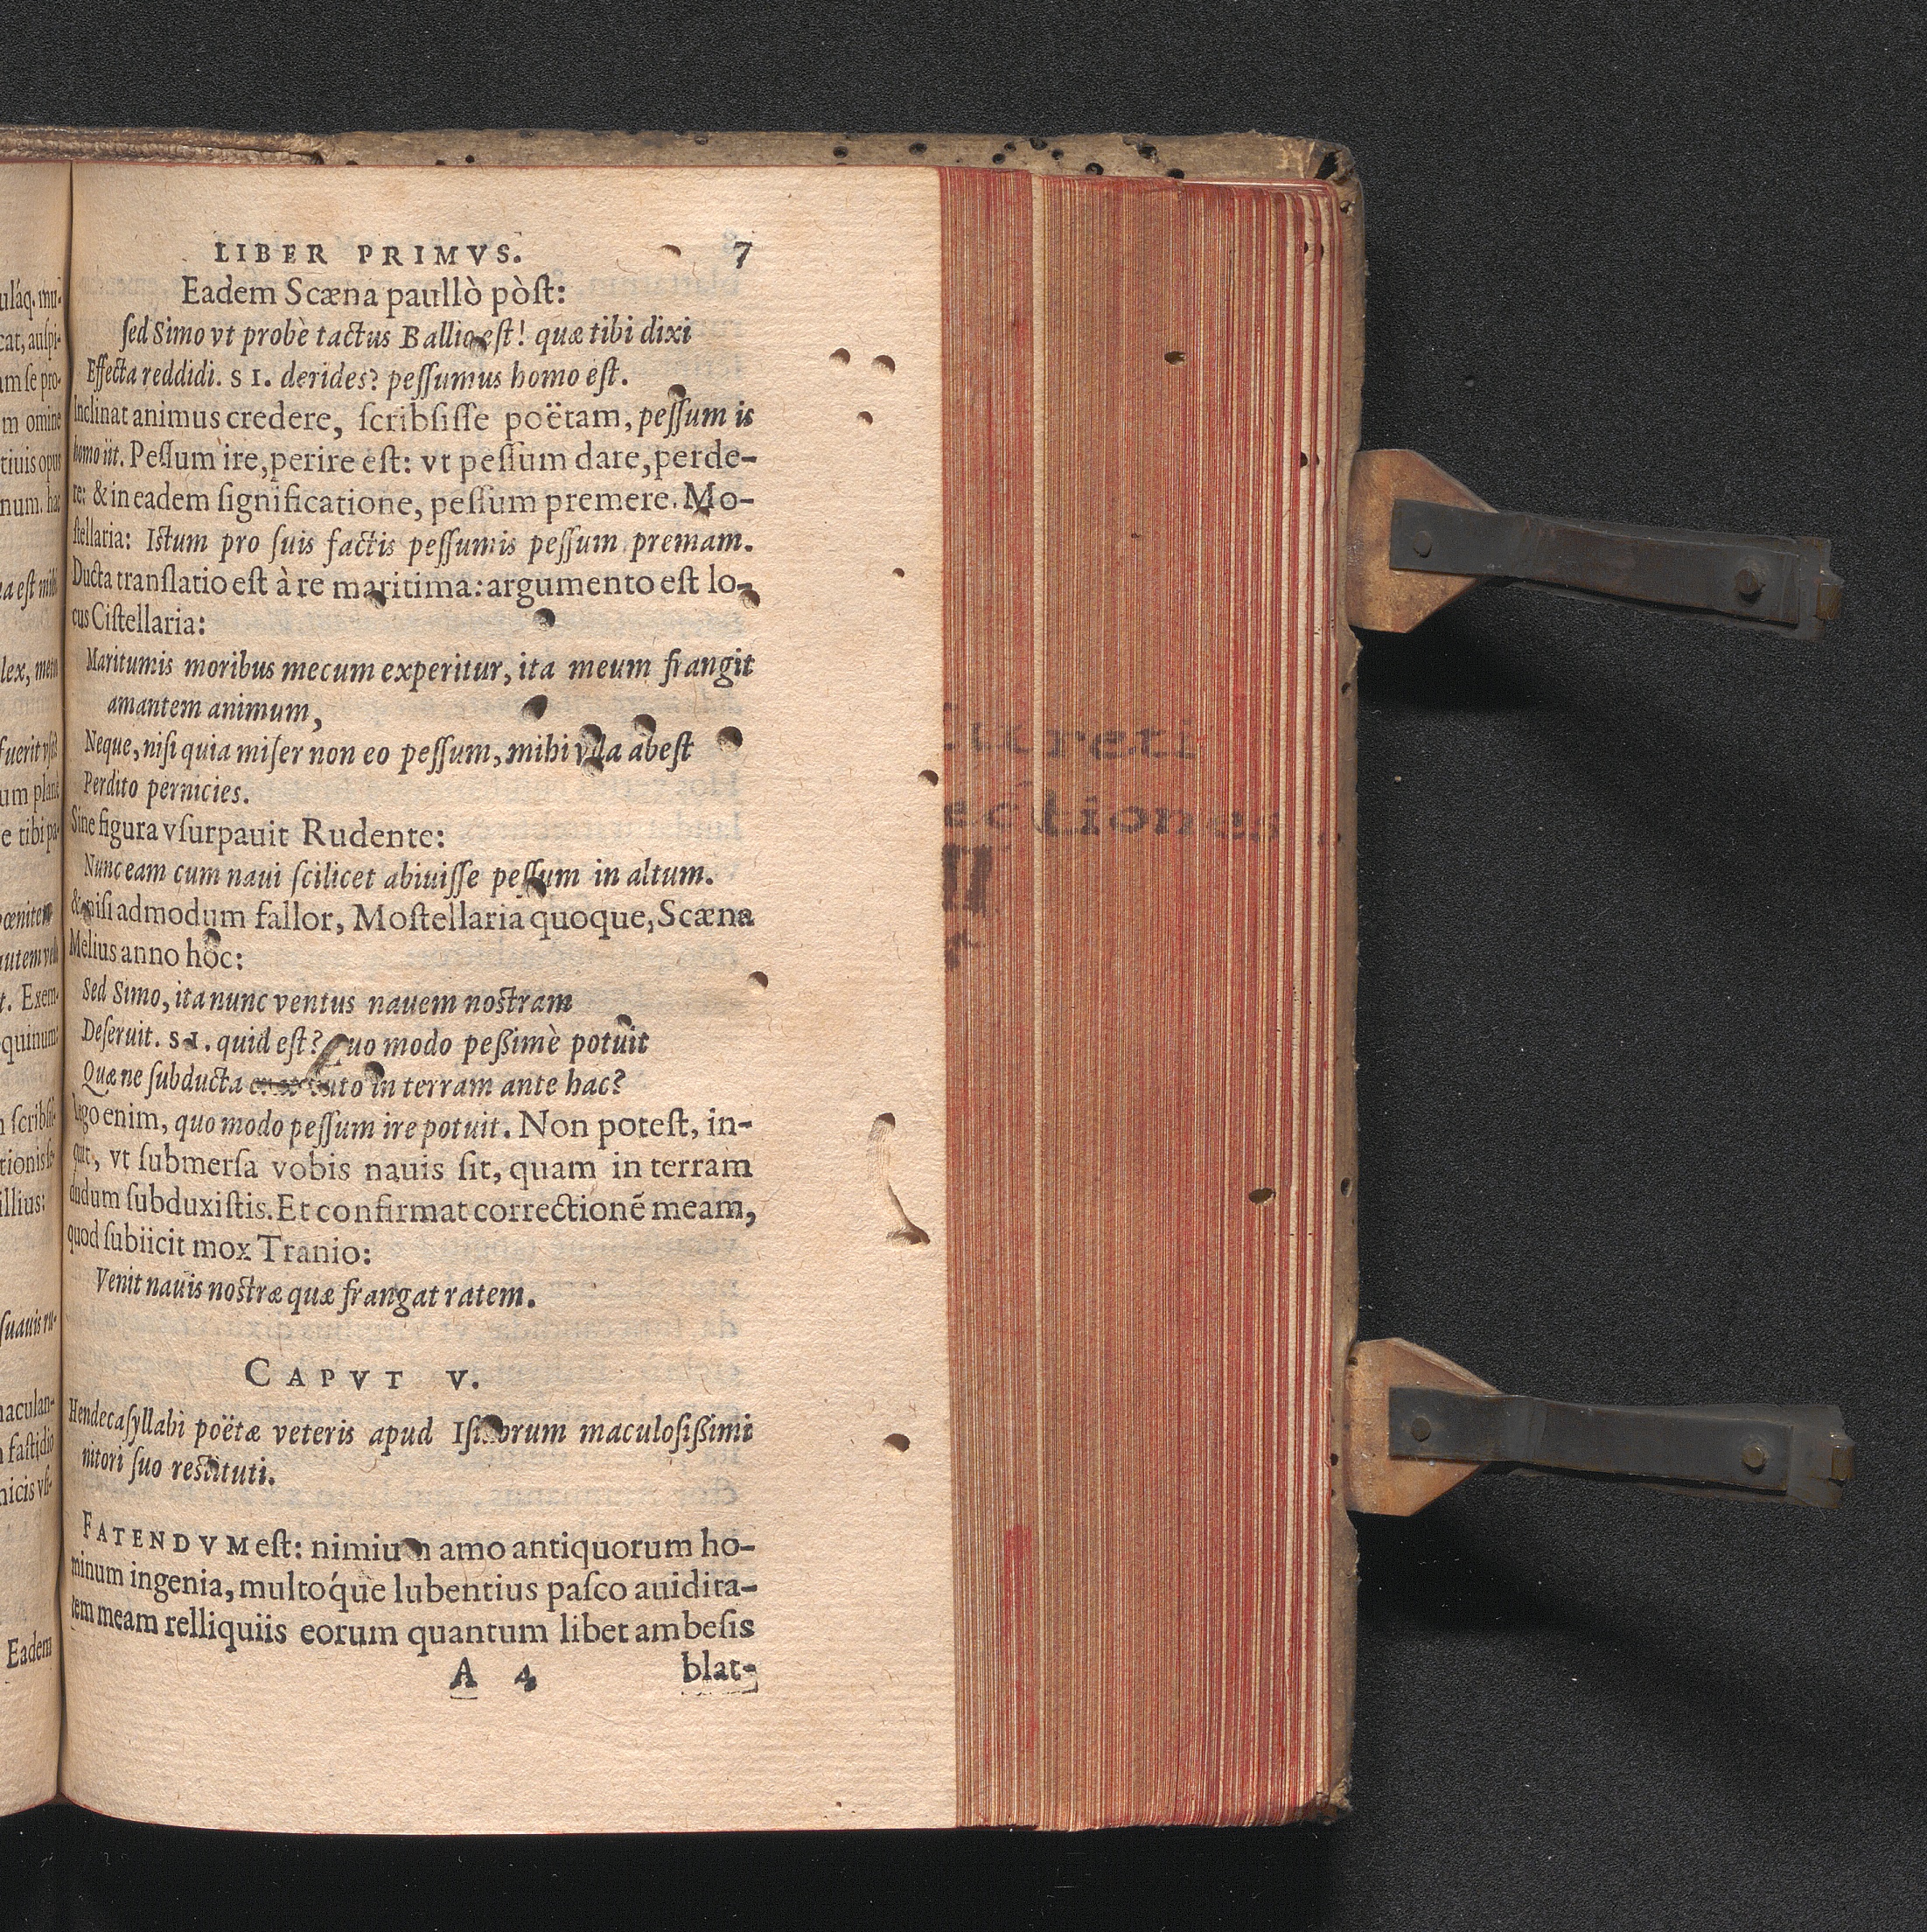 uláq. mu-
cat, auspi-
am se pro-
m omine
tiuis opus
num. hac
a est mihi
lex, mera
fuerit vsi
um planè
e tibi pa-
pœnitem
autem
t. Exem-
quinum:
scribsis-
tionis
illius:
suauis ru-
maculan-
fastidio
micis vs-
Eadem
LIBER PRIMVS. 7
Eadem Scæna paullò pòst:
sed Simo vt probè tactus Ballio est! quæ tibi dixi
Effecta reddidi. SI. derides? pessumus homo est.
Inclinat animus credere, scribsisse poëtam, pessum is
homo iit. Pessum ire, perire est: vt pessum dare, perde-
re: & in eadem significatione, pessum premere. Mo-
stellaria: Istum pro suis factis pessumis pessum premam.
Ducta translatio est à re maritima: argumento est lo-
cus Cistellaria:
Maritumis moribus mecum experitur, ita meum frangit
amantem animum,
Neque, nisi quia miser non eo pessum, mihi vlla abest
Perdito pernicies.
Sine figura vsurpauit Rudente:
Nunc eam cum naui scilicet abiuisse pessum in altum.
& nisi admodum fallor, Mostellaria quoque, Scæna
Melius anno hoc:
Sed Simo, ita nunc ventus nauem nostram
Deseruit. SI. quid est? quo modo peßimè potuit
Quæ ne subducta in terram ante hac?
lego enim, quo modo pessum ire potuit. Non potest, in-
quit, vt submersa vobis nauis sit, quam in terram
dudum subduxistis. Et confirmat correctionẽ meam,
quod subiicit mox Tranio:
Venit nauis nostræ quæ frangat ratem.
CAPVT V.
Hendecasyllabi poëtæ veteris apud Isidorum maculosißimi
nitori suo restituti.
FATENDVM est: nimium amo antiquorum ho-
minum ingenia, multoq́ue lubentius pasco auidita-
tem meam relliquiis eorum quantum libet ambesis
A 4 blat-
creti
ectiones